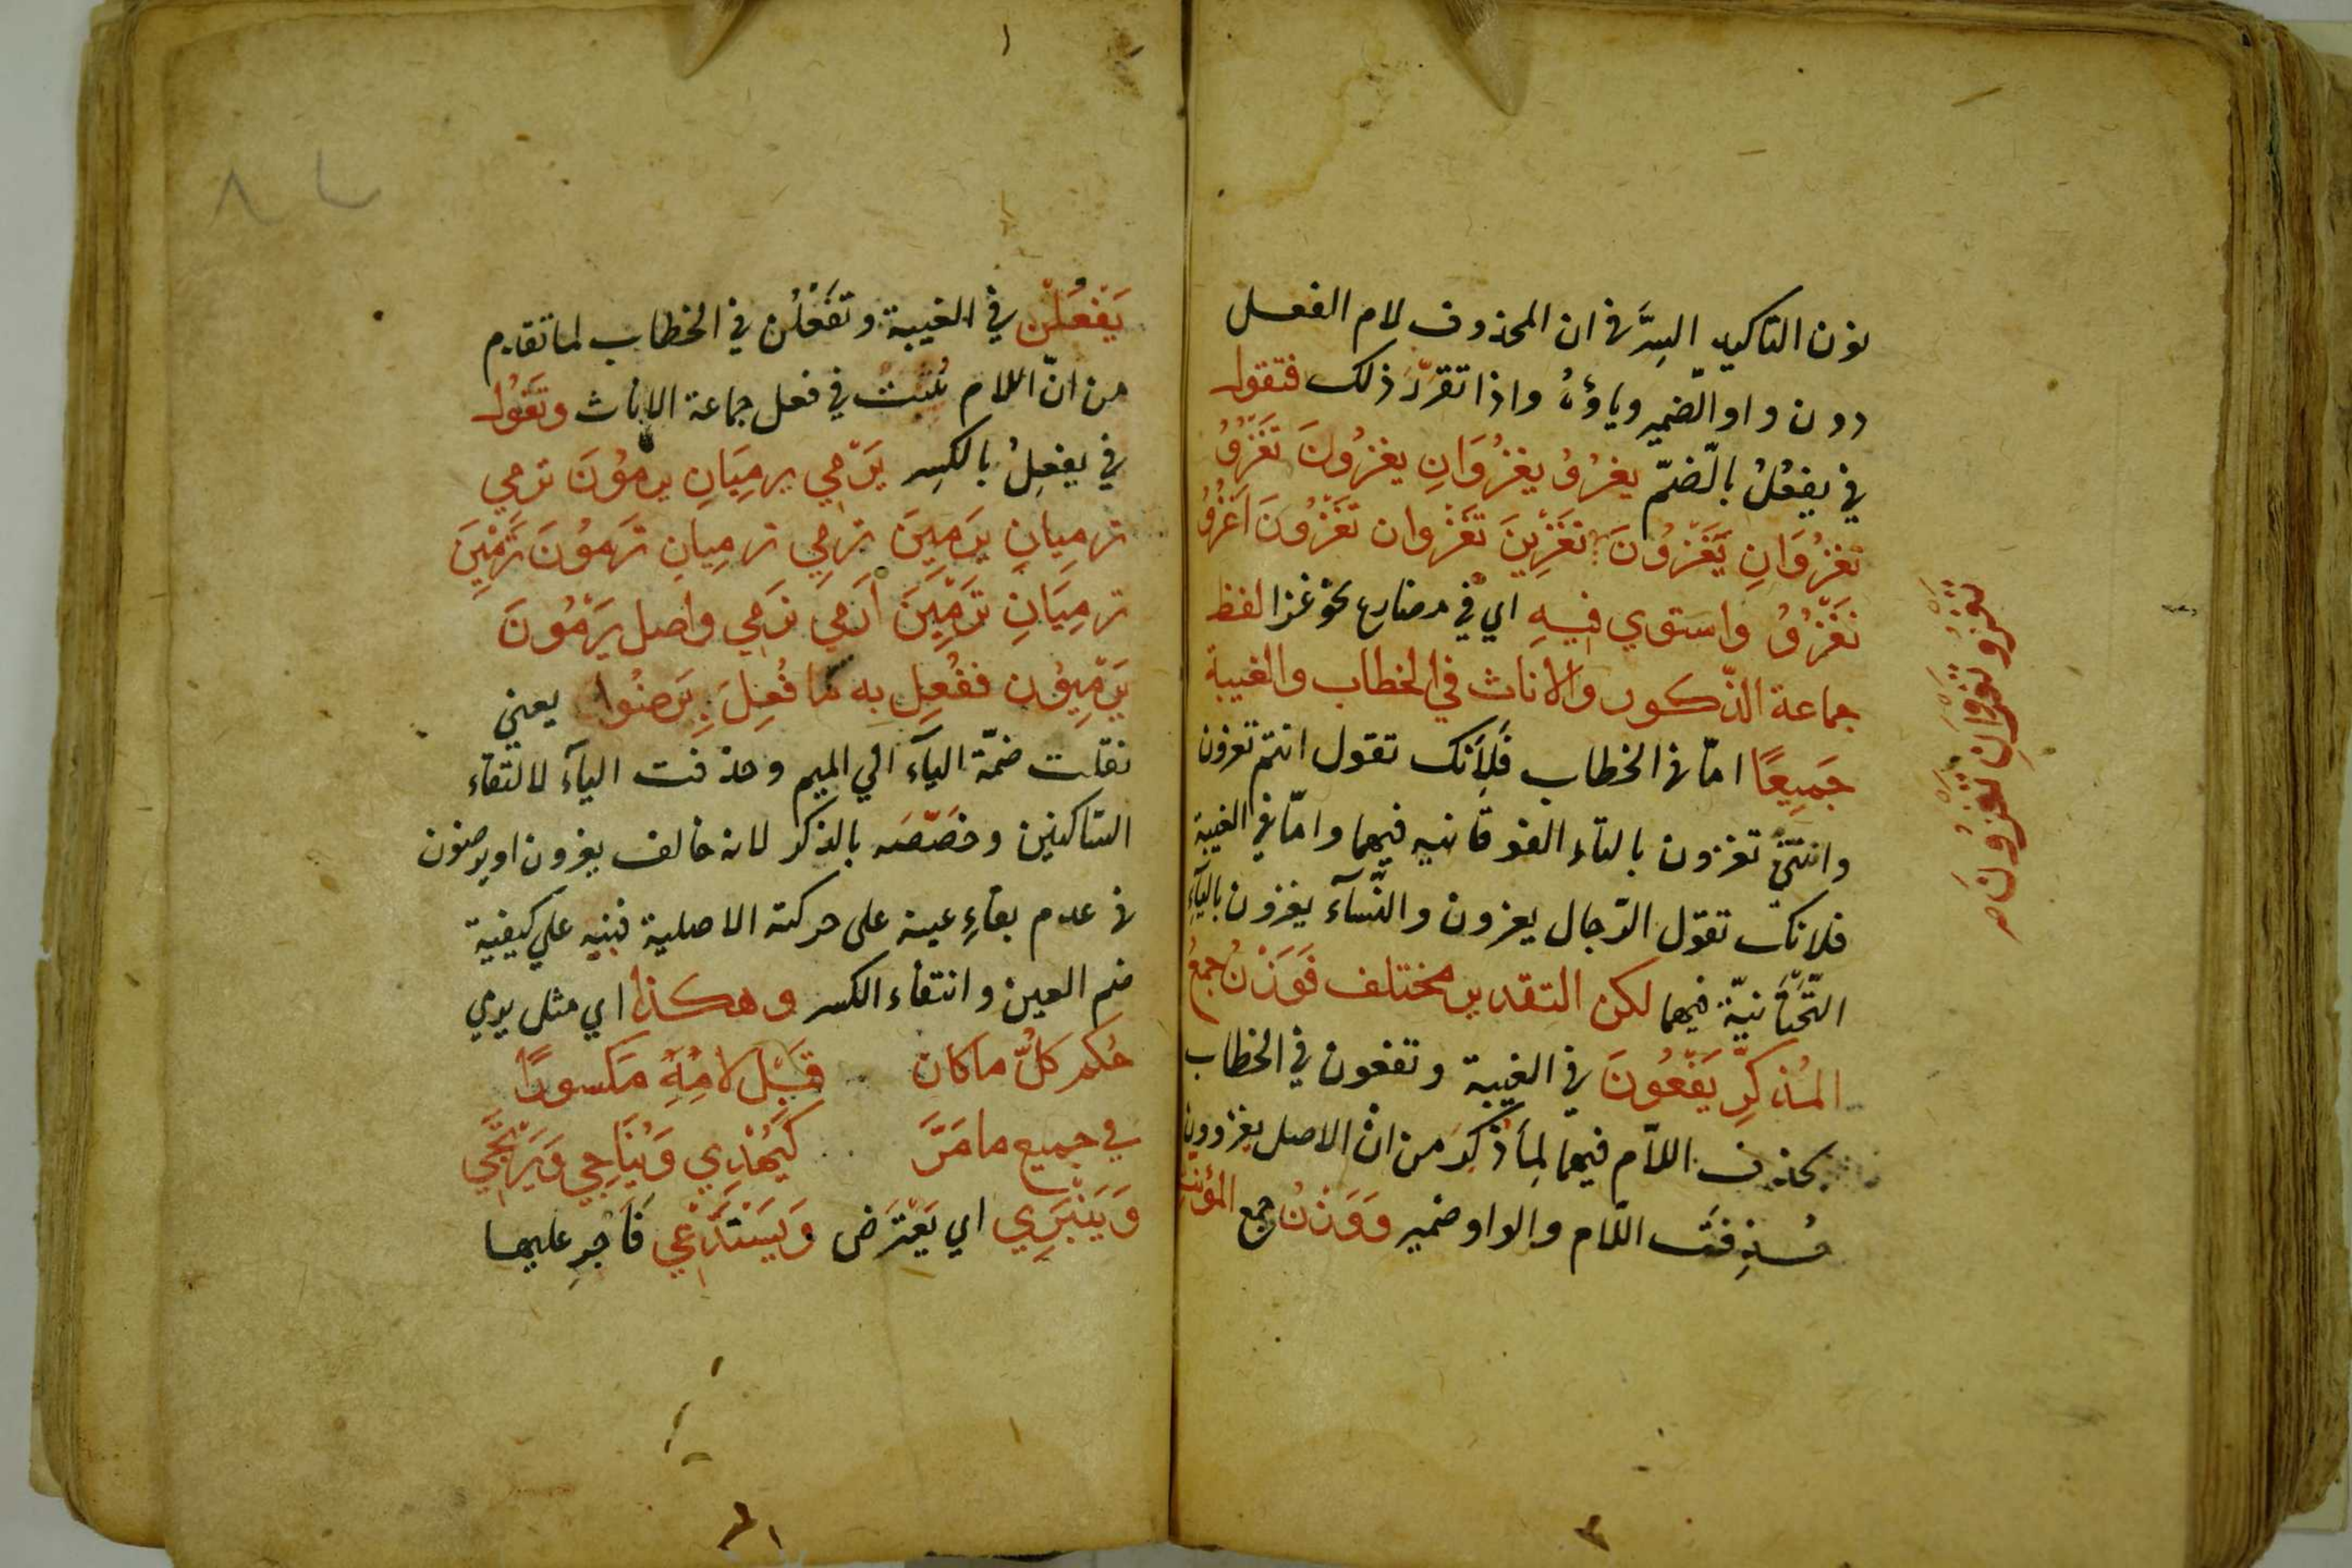 نون التاكيد السِرّ في ان المحذوف لام الفعل
دون واو الضمير وياؤُهُ واذا تقرّر ذلك فتقول
في يفعُلُ بالضّمّ يغزُوُ يغزُوَانِ يغزُونَ تَغْزُوُ
تغزُوَانِ يَغْزُونَ تَغْزِينَ تَغْزُوان تَغْزُونَ اَغْزُوُ
نَغْزُوُ واستوي فيهِ اي في مضارع نحو غزا لفظ
جماعة الذّكور والاناث في الخطاب والغيبة
جَمِيعًا امّا في الخطاب فَلِأَنك تقول انتم تغزون
وانتنّ تغزون بالتاء الفوقانيه فيهما وامّا في الغيبة
فلانك تقول الرّجال يغزون والنّسآء يغزون باليآءِ
التّحْتَانيّة فيهما لكن التقدير مختلف فَوَزْنُ جمعُ
المُذكرِّ يَفْعُونَ في الغيبة وتفعون في الخطاب
بحذف اللاّم فيهما لِمَا ذُكِرَ من انّ الاصل يغزوون
حُذِفَت اللّام والواو ضمير وَوَزْنُ جمع المؤنث
تغزُو تغزُوَانِ تغزُونَ صح
يَفْعُلْن في الغيبة وتَفْعُلْن في الخطاب لما تقدم
من انّ اللام تُثبتُ في فعل جماعة الاناث وتَقُول
في يفعِلُ بالكسِر يَرْمِي يرمِيَانِ يرمُوْنَ ترمِي
ترمِيانِ يَرمِينَ ترمِي ترمِيانِ تَرمُوْنَ تَرْمِيْنَ
ترمِيَانِ تَرْمِيْنَ اَرمِي نَرمِي واصل يَرْمُونَ
يَرْمِيُوْن ففُعِل به ما فُعِلَ بِرَضُوا يعني
نقلت ضمّة اليآء الي الميم وحذفت اليآء لالتقاء
السّاكنين وخَصّصَه بالذكر لانه خالف يغزون او يرضون
في عدم بقاءِ عينه على حركته الاصلية فنبه علي كيفية
ضم العين وانتفاء الكسر وهكذا اي مثل يرمي
حُكم كلُّ ما كان قَبْل لامِهِ مَكسورًا
في جميع ما مَرَّ كَيُهْدِي وَيُنَاجِي وَيَرْتَجِي
وَيَنْبَرِي اي يَعْتَرض وَيَسْتَدْعِي فَاَجْرِ عليها